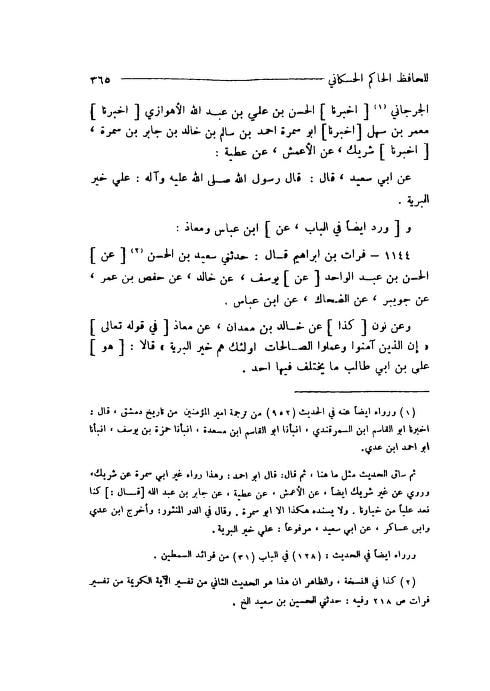 للحافظ الحاكم الحسكاني ٣٦٥
الجرجاني (١) [ اخبرنا ] الحسن بن علي بن عبد الله الأهوازي [ اخبرنا ]
معمر بن سهل [اخبرنا] ابو سمرة احمد بن سالم بن خالد بن جابر بن سمرة ،
[ اخبرنا ] شريك ، عن الأعمش ، عن عطية :
عن ابي سعيد ، قال : قال رسول الله صلى الله عليه وآله : علي خير
البرية .
و [ ورد ايضاً في الباب ، عن ] ابن عباس ومعاذ :
١١٤٤ – فرات بن ابراهيم قال : حدثني سعيد بن الحسن (٢) [ عن ]
الحسن بن عبد الواحد [ عن ] يوسف ، عن خالد ، عن حفص بن عمر ، عن
عن جويبر ، عن الضحاك ، عن ابن عباس .
وعن نون [ كذا ] عن خالد بن معدان ، عن معاذ [ في قوله تعالى ]
« إن الذين آمنوا وعملوا الصالحات اولئك هم خير البرية » قالا : [ هو ]
علي بن ابي طالب ما يختلف فيها احد .
(١) ورواه ايضاً عنه في الحديث (٩٥٢) من ترجمة امير المؤمنين من تاريخ دمشق ، قال :
اخبرنا ابو القاسم ابن السمرقندي ، انبأنا ابو القاسم ابن مسعدة ، انبأنا حمزة بن يوسف ، انبأنا
ابو احمد ابن عدي.
ثم ساق الحديث مثل ما هنا ، ثم قال: قال ابو احمد : وهذا رواه غير ابي سمرة عن شريك،
وروي عن غير شريك ايضاً ، عن الأعمش ، عن عطية ، عن جابر بن عبد الله [قال :] كنا
نعد علياً من خيارنا . ولا يسنده هكذا الا ابو سمرة . وقال في الدر المنثور: وأخرج ابن عدي
وابن عساكر ، عن ابي سعيد ، مرفوعاً : علي خير البرية .
ورواه ايضاً في الحديث : (١٢٨) في الباب (٣١) من فرائد السمطين .
(٢) كذا في النسخة ، والظاهر ان هذا هو الحديث الثاني من تفسير الآية الكريمة من تفسير
فرات ص ٢١٨ وفيه : حدثني الحسين بن سعيد الخ .